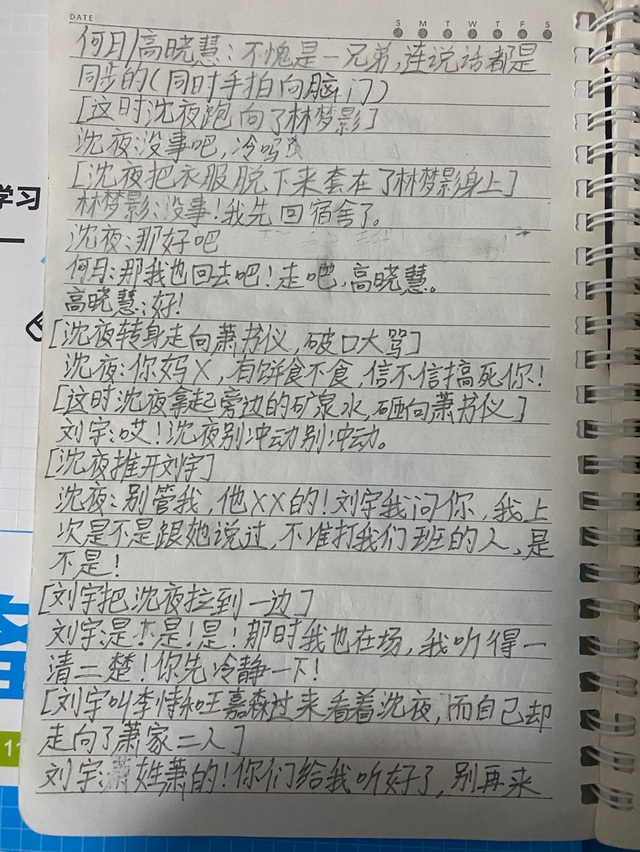 DATE
S M T W T F S
何月/高晓慧:不愧是一兄弟,连说话都是
同步的(同时手拍向脑门)
[这时沈夜跑向了林梦影]
沈夜:没事吧,冷吗
[沈夜把衣服脱下来套在了林梦影身上]
林梦影:没事!我先回宿舍了。
沈夜:那好吧
何月:那我也回去吧!走吧,高晓慧。
高晓慧:好!
[沈夜转身走向萧书仪,破口大骂]
沈夜:你妈X,有 食不食,信不信搞死你!
[这时沈夜拿起旁边的矿泉水,砸向萧书仪]
刘宇:哎!沈夜别冲动别冲动。
[沈夜推开刘宇]
沈夜:别管我,他XX的!刘宇我问你,我上
次是不是跟她说过,不准打我们班的人,是
不是!
[刘宇把沈夜拉到一边]
刘宇:是不是!是!那时我也在场,我听得一
清二楚!你先冷静一下!
[刘宇叫李恃和王嘉森过来看着沈夜,而自己却
走向了萧家二人]
刘宇:姓萧的!你们给我听好了,别再来
学习
11